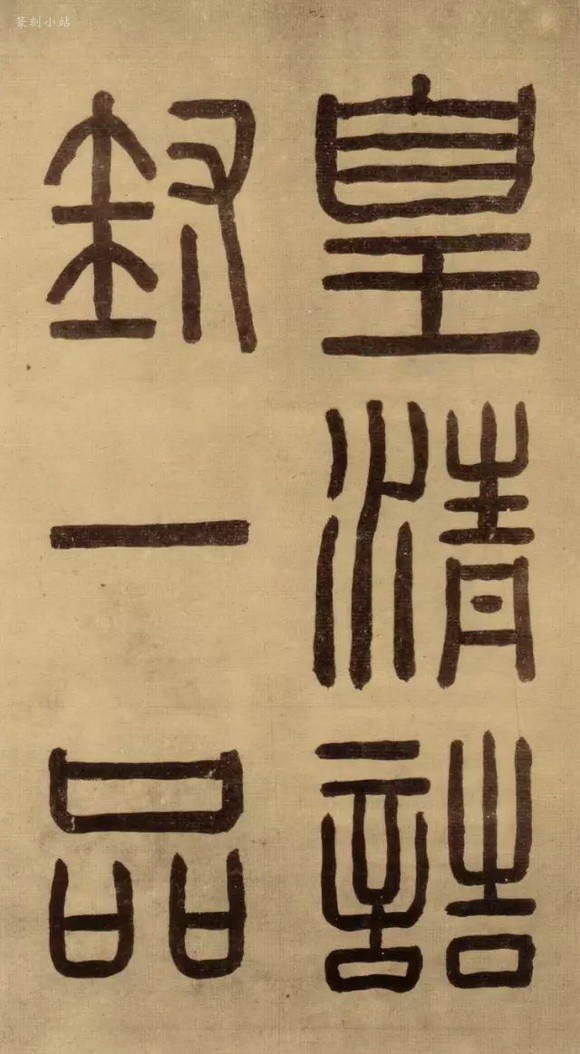 篆刻小站
皇清誥
封一品